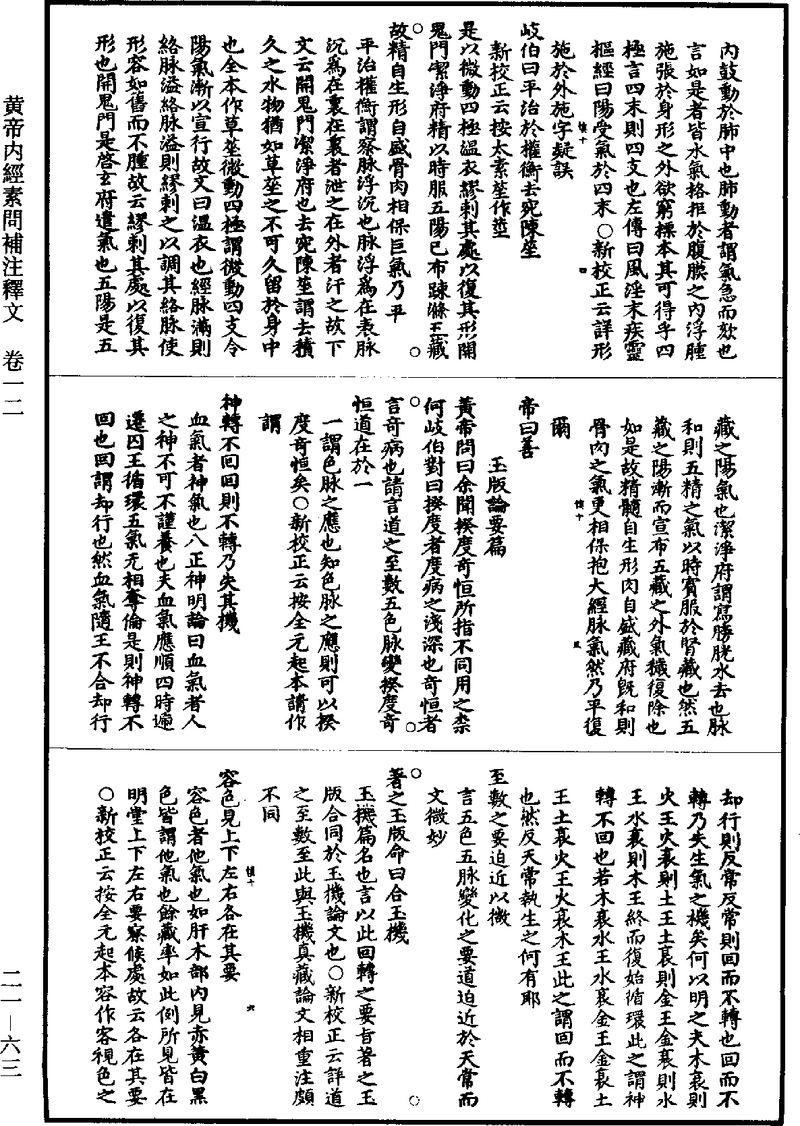 内鼓動於肺中也肺動者謂氣急而欬也
言如是者皆水氣格拒於腹膜之内浮腫
施張於身形之外欲窮標本其可得乎四
極言四末則四支也左傳曰風淫末疾靈
樞經曰陽受氣於四末○新校正云詳形
施於外施字疑誤
岐伯曰平治於權衡去宛陳莝
新校正云按太素莝作莖
是以微動四極温衣繆剌其處以復其形開
鬼門潔淨府精以時服五陽已布踈滌五藏
故精自生形自盛骨肉相保巨氣乃平
平治權衡謂察脉浮沉也脉浮爲在表脉
沉爲在裏在裏者泄之在外者汗之故下
文云開鬼門潔淨府也去宛陳莝謂去積
久之水物猶如草莝之不可久留於身中
也全本作草莝微動四極謂微動四支令
陽氣漸以宣行故文曰温衣也經脉滿則
絡脉溢絡脉溢則繆剌之以調其絡脉使
形容如舊而不腫故云繆剌其處以復其
形也開鬼門是啓玄府遣氣也五陽是五
藏之陽氣也潔淨府謂寫膀胱水去也脉
和則五精之氣以時賓服於腎藏也然五
藏之陽漸而宣布五藏之外氣穢復除也
如是故精髓自生形肉自盛藏府既和則
骨肉之氣更相保抱大經脉氣然乃平復
爾
帝曰善
玉版論要篇
黃帝問曰余聞揆度奇恒所指不同用之柰
何岐伯對曰揆度者度病之淺深也奇恒者
言奇病也請言道之至數五色脉變揆度奇
恒道在於一
一謂色脉之應也知色脉之應則可以揆
度奇恒矣○新校正云按全元起本請作
謂
神轉不回回則不轉乃失其機
血氣者神氣也八正神明論曰血氣者人
之神不可不謹養也夫血氣應順四時遞
遷囚王循環五氣无相奪倫是則神轉不
回也回謂却行也然血氣隨王不合却行
却行則反常反常則回而不轉也回而不
轉乃失生氣之機矣何以明之夫木衰則
火王火衰則土王土衰則金王金衰則水
王水衰則木王終而復始循環此之謂神
轉不回也若木衰水王水衰金王金衰土
王土衰火王火衰木王此之謂回而不轉
也然反天常執生之何有耶
至數之要迫近以微
言五色五脉變化之要道迫近於天常而
文微妙
著之玉版命曰合玉機
玉機篇名也言以此回轉之要旨著之玉
版合同於玉機論文也○新校正云詳道
之至數至此與玉機真藏論文相重注頗
不同
容色見上下左右各在其要
容色者他氣也如肝木部内見赤黃白黑
色皆謂他氣也餘藏率如此例所見皆在
明堂上下左右要察候處故云各在其要
○新校正云按全元起本容作客視色之
黄帝内經素問補注釋文　卷一二
二一—六三